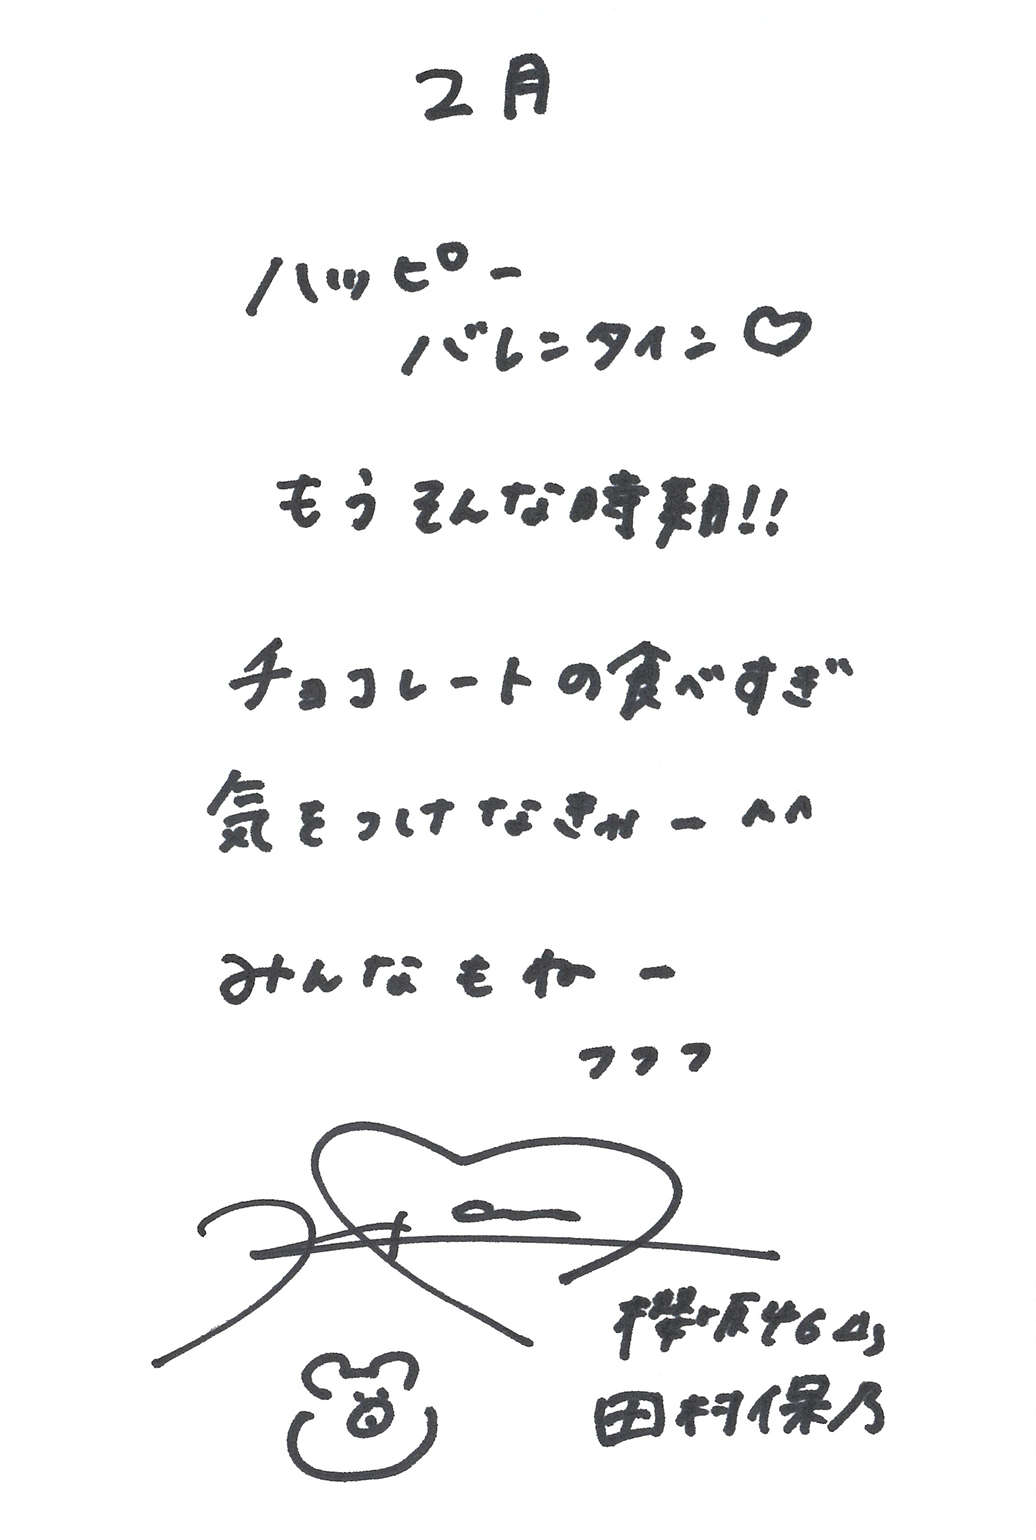 2月
ハッピー
バレンタイン♡
もうそんな時期!!
チョコレートの食べすぎ
気をつけなきゃー^^
みんなもねー
フフフ
櫻坂46
田村保乃